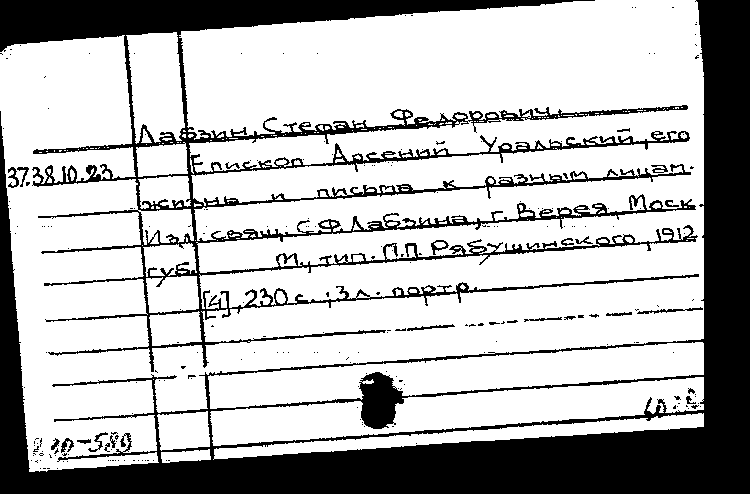 Лабзин, Стефан Федорович.
37.38.10.23. Епископ Арсений Уральский, его
жизнь и письма к разным лицам.
Изд. свящ. С.Ф.Лабзина, г. Верея, Моск.
губ. М., тип. П.П. Рябушинского, 1912.
[4], 230 с.; 3 л. портр.